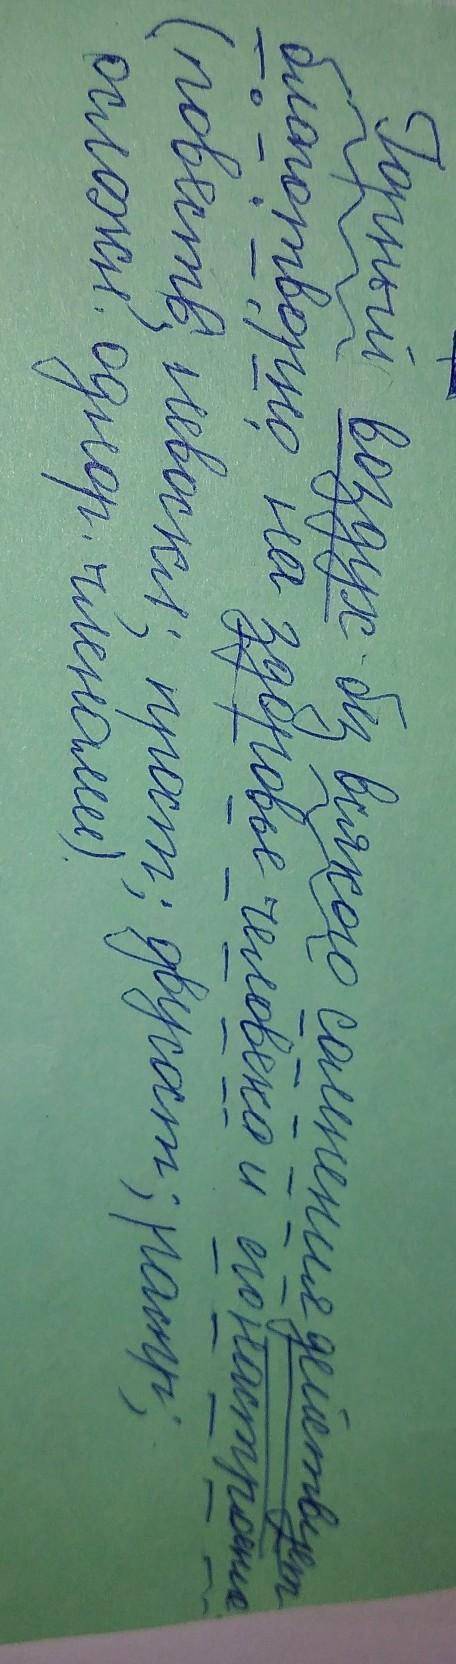 Горный воздух без всякого сомнения действует
благотворно на здоровье человека и по настроение
(повеств, невоскл; прост; двусост; распр;
осложн. однор. членами).